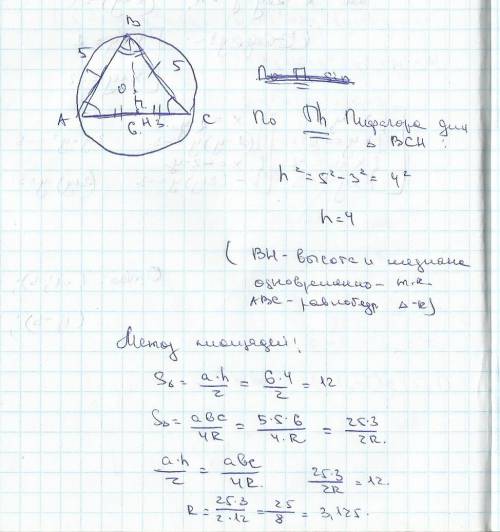 B
5 5
O
h
A H 3 C
6
По Th sin
По Th Пифагора для
△ BCH:
h² = 5² - 3² = 4²
h = 4
(BH - высота и медиана
одновременно - т.к.
ABC - равнобедр △-к)
Метод площадей!
S△ = a·h/2 = 6·4/2 = 12
S△ = abc/4R = 5·5·6/4·R = 25·3/2R.
a·h/2 = abc/4R. 25·3/2R = 12.
R = 25·3/2·12 = 25/8 = 3,125.